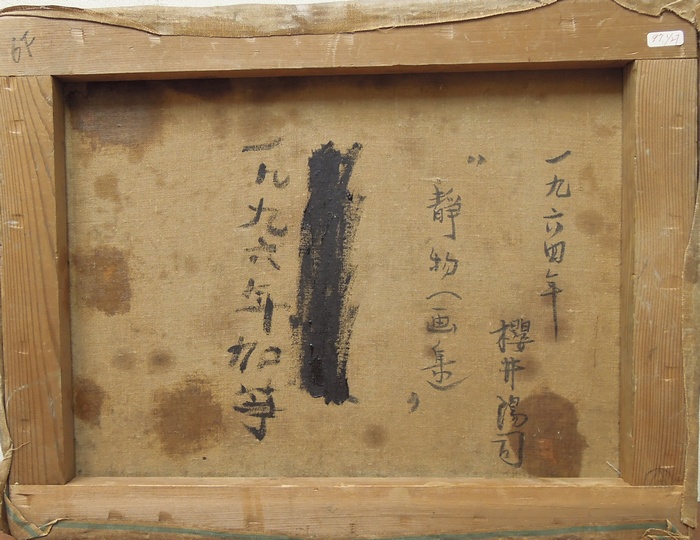 一九六四年
櫻井陽司
〃静物（画集）〃
一九九六年加筆
64